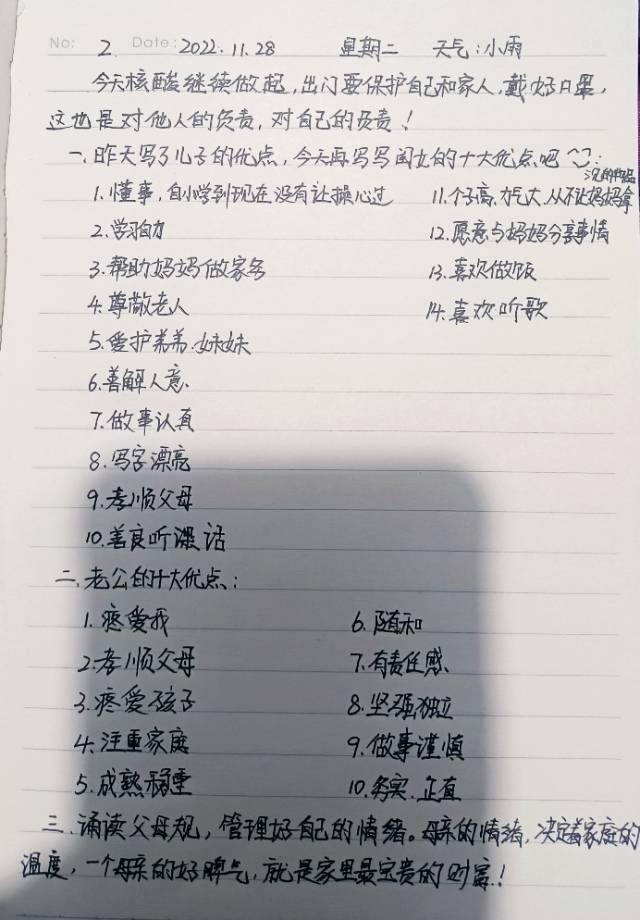 No: 2 Date: 2022.11.28 星期二 天气:小雨
今天核酸继续做起,出门要保护自己和家人,戴好口罩,
这也是对他人的负责,对自己的负责!
一、昨天写了儿子的优点,今天再写写闺女的十大优点吧
1.懂事,自小学到现在没有让操心过
2.学习自力
3.帮助妈妈做家务
4.尊敬老人
5.爱护弟弟.妹妹
6.善解人意、
7.做事认真
8.写字漂亮
9.孝顺父母
10.善良听话
11.个子高、力气大、从不让妈妈拿
12.愿意与妈妈分享事情
13.喜欢做饭
14.喜欢听歌
二、老公的十大优点:
1.疼爱我
2.孝顺父母
3.疼爱孩子
4.注重家庭
5.成熟稳重
6.随和
7.有责任感、
8.坚强独立
9.做事谨慎
10.务实.正直
三、诵读父母规,管理好自己的情绪。母亲的情绪,决定着家庭的
温度,一个母亲的好脾气,就是家里最宝贵的财富!